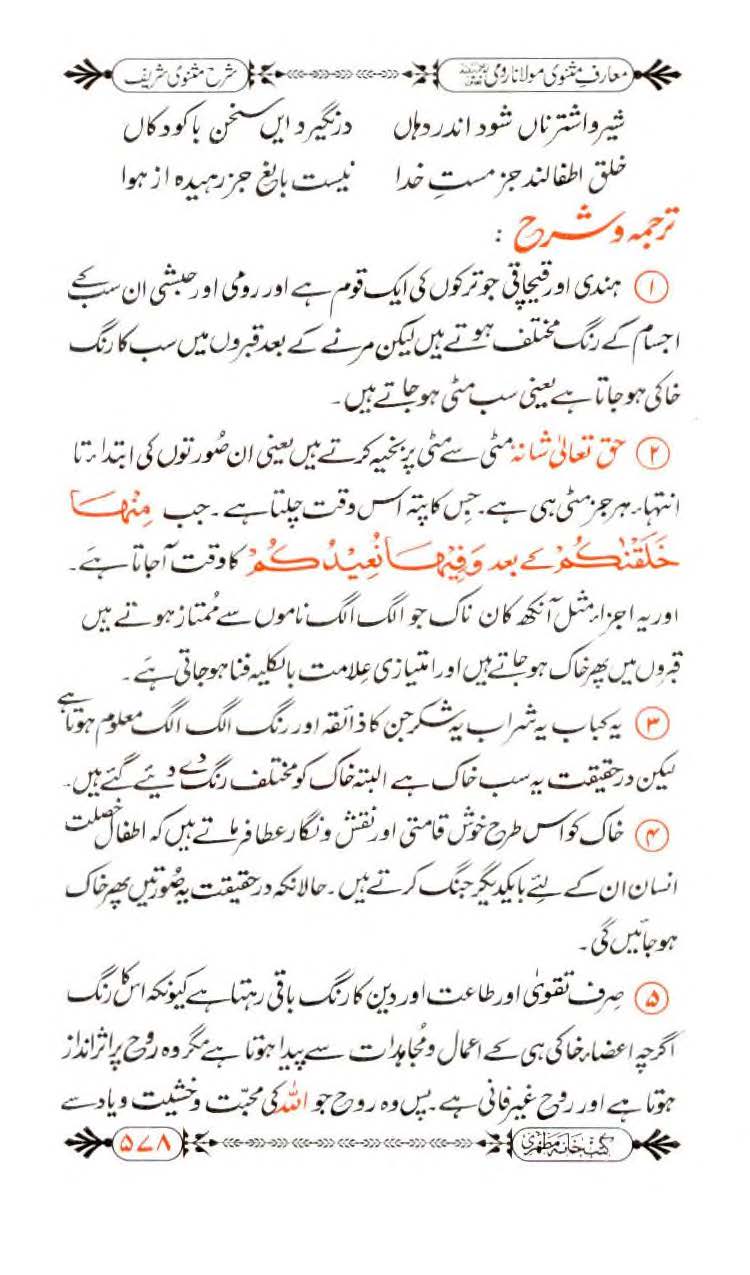 معارفِ مثنوی مولانا رومی شرح مثنوی شریف
شیر و اشتر ناں شود اندر دہاں درنگیرد ایں سخن با کودکاں
خلق اطفالند جز مستِ خدا نیست بالغ جز رہیدہ از ہوا
ترجمہ و شرح :
۱ ہندی اور قیچاقی جو ترکوں کی ایک قوم ہے اور رومی اور حبشی ان سب کے
اجسام کے رنگ مختلف ہوتے ہیں لیکن مرنے کے بعد قبروں میں سب کا رنگ
خاکی ہو جاتا ہے یعنی سب مٹی ہو جاتے ہیں۔
۲ حق تعالیٰ شانہٗ مٹی سے مٹی پر بخیہ کرتے ہیں یعنی ان صُورتوں کی ابتداء تا
انتہاء ہر جز مٹی ہی ہے۔ جس کا پتہ اس وقت چلتا ہے۔ جب مِنْهَا
خَلَقْنٰكُمْ کے بعد وَفِيْهَا نُعِيْدُكُمْ کا وقت آ جاتا ہے۔
اور یہ اجزاء مثل آنکھ کان ناک جو الگ الگ ناموں سے مُمتاز ہوتے ہیں
قبروں میں پھر خاک ہو جاتے ہیں اور امتیازی علامت بالکلیہ فنا ہو جاتی ہے۔
۳ یہ کباب یہ شراب یہ شکر جن کا ذائقہ اور رنگ الگ الگ معلوم ہوتا ہے
لیکن درحقیقت یہ سب خاک ہے البتہ خاک کو مختلف رنگ دے دیئے گئے ہیں۔
۴ خاک کو اس طرح خوش قامتی اور نقش و نگار عطا فرماتے ہیں کہ اطفال خصلت
انسان ان کے لئے بایکدیگر جنگ کرتے ہیں۔ حالانکہ درحقیقت یہ صُورتیں پھر خاک
ہو جائیں گی۔
۵ صِرف تقویٰ اور طاعت اور دین کا رنگ باقی رہتا ہے کیونکہ اس کا رنگ
اگرچہ اعضاء خاکی ہی کے اعمال و مُجاہدات سے پیدا ہوتا ہے مگر وہ روح پر اثر انداز
ہوتا ہے اور روح غیر فانی ہے۔ پس وہ روح جو اللہ کی محبّت و خشیت و یاد سے
کتب خانہ مظہری ۵۷۸